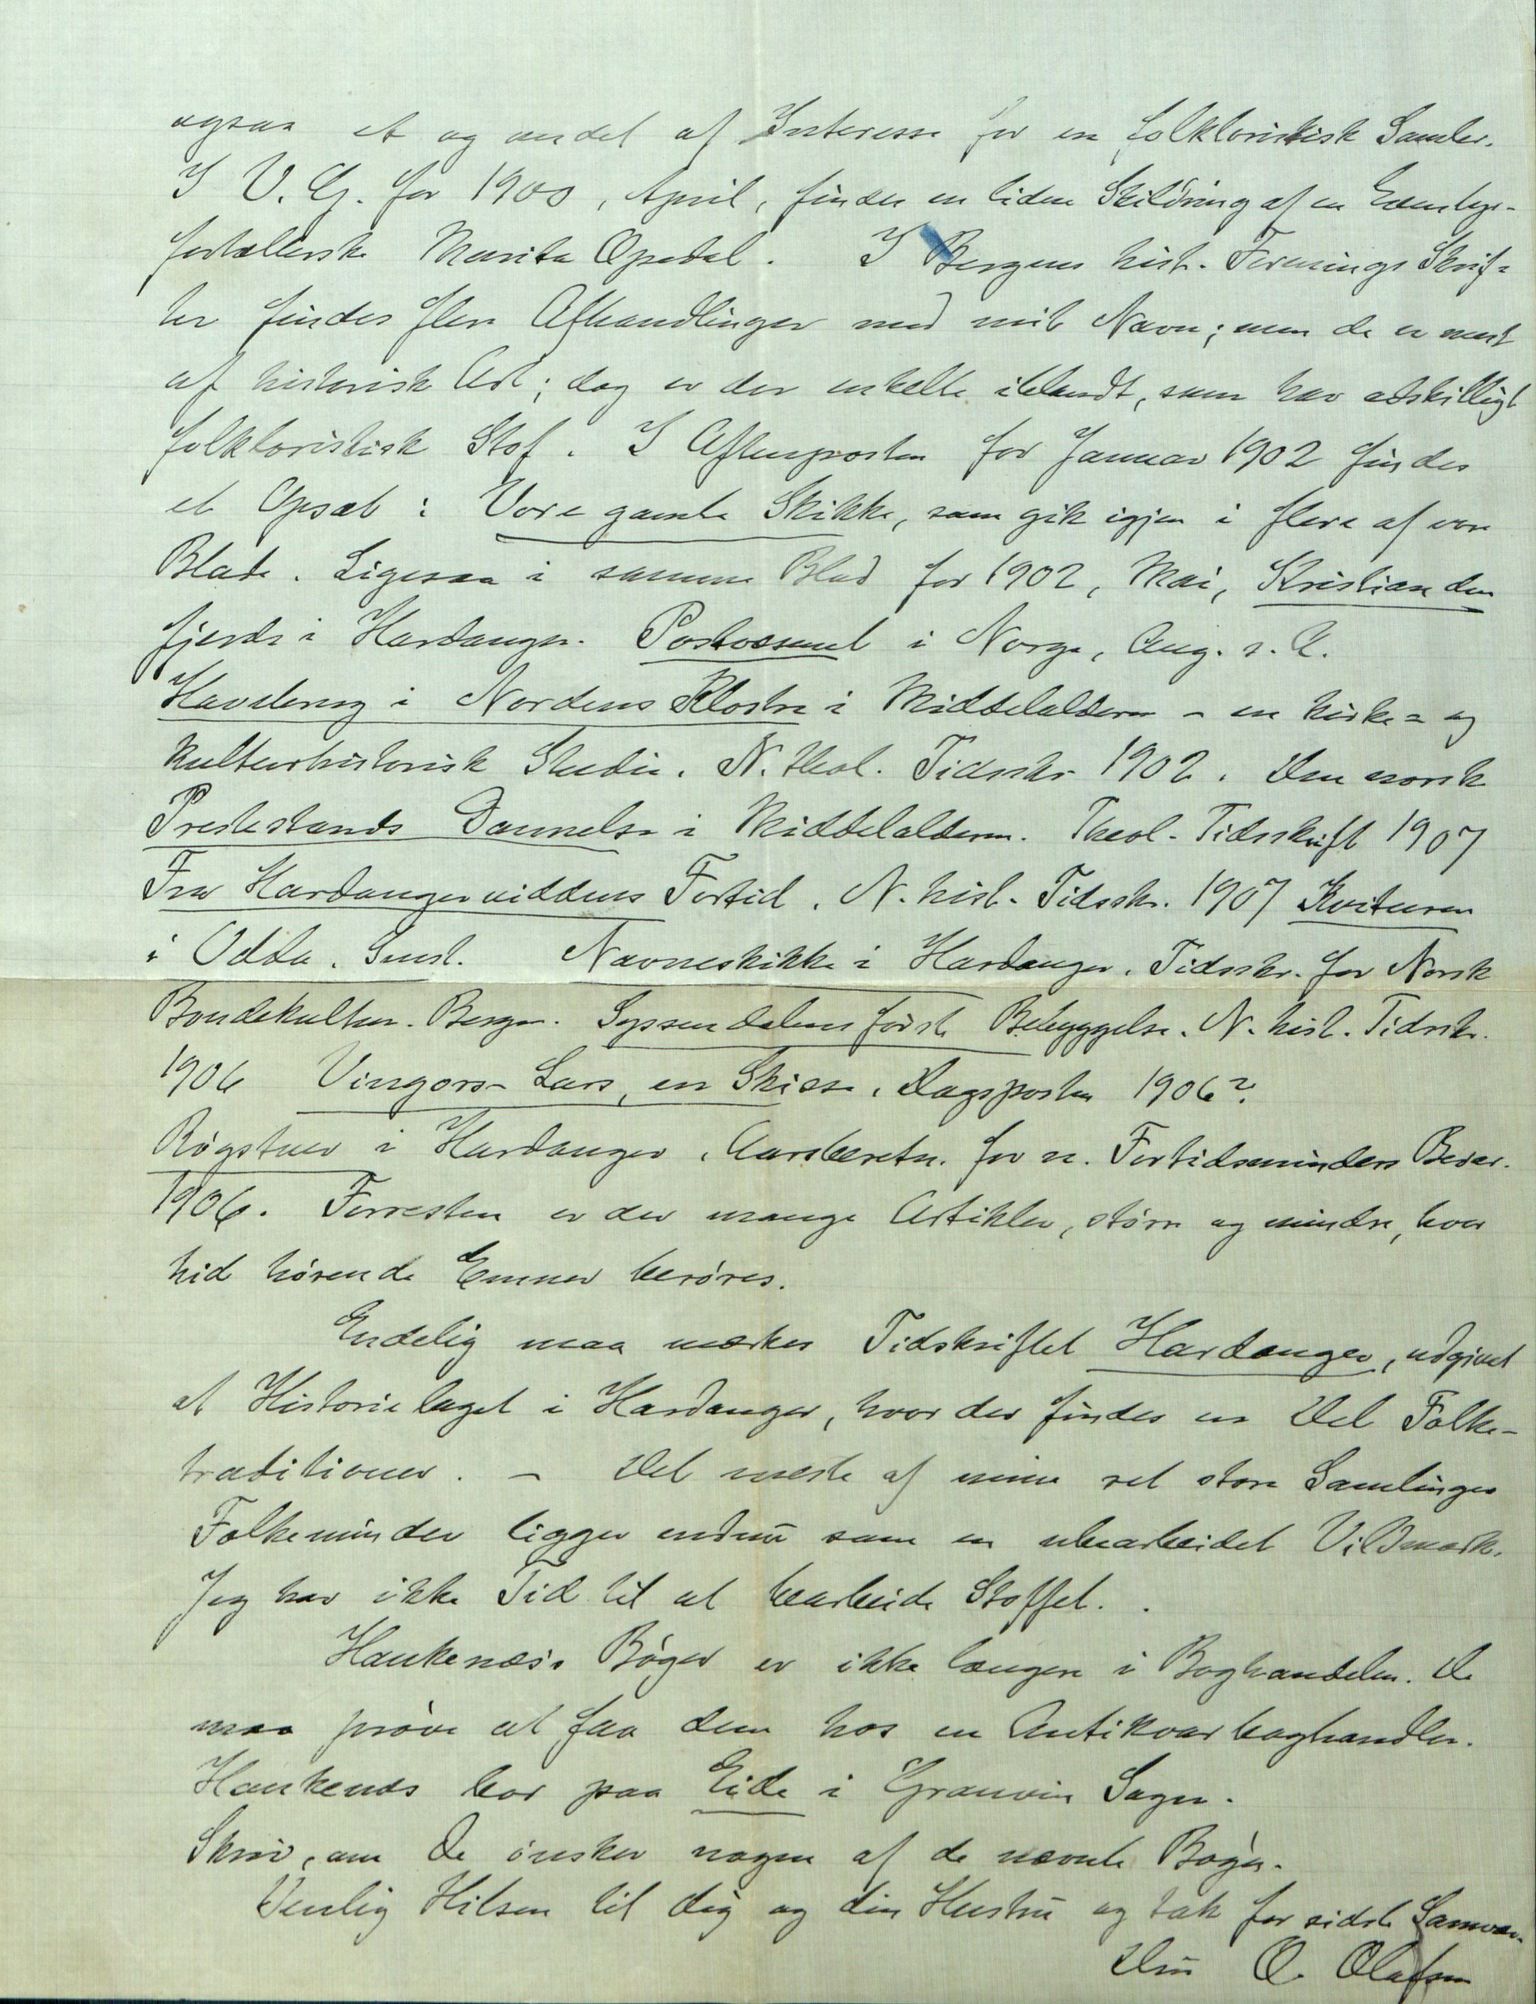 ogsaa et og andet af Interesse for en folkloristisk Samler.
I V. G. for 1900, April, findes en liden Skildring af en Eventyr-
fortællerske Marita Opedal. I Bergens hist. Forenings Skrif-
ter findes flere Afhandlinger med mit Navn; men de er mest
af historisk Art; dog er der enkelte iblandt, som har adskilligt
folkloristisk Stof. I Aftenposten for Januar 1902 findes
et Opsæt: Vore gamle Skikke, som gik igjen i flere af vore
Blade. Ligesaa i samme Blad for 1902, Mai, Kristian den
fjerde i Hardanger. Postvæsenet i Norge, Aug. s. A.
Havedyrkning i Nordens Klostre i Middelalderen - en kirke- og
kulturhistorisk Studie. N. theol. Tidsskr. 1902. Den norske
Prestestands Dannelse i Middelalderen. Theol. Tidsskrift 1907
Fra Hardangerviddens Fortid. N. hist. Tidsskr. 1907
i Odda. Smst. Navneskikke i Hardanger. Tidsskr. for Norsk
Bondekultur. Bergen. Syssendalens første Bebyggelse. N. hist. Tidsskr.
1906 Vingors-Lars, en Skisse. Dagsposten 1906?
Røgstuer i Hardanger. Aarsberetn. for n. Fortidsminders Bevar.
1906. Forresten er der mange Artikler, større og mindre, hvor
hid hørende Emner berøres.
Endelig maa mærkes Tidskriftet Hardanger, udgivet
af Historielaget i Hardanger, hvor der findes en Del Folke-
traditioner. - Det meste af mine ret store Samlinger
Folkeminder ligger endnu som en ubearbeidet Vildmark.
Jeg har ikke Tid til at bearbeide Stoffet.
Haukenæs's Bøger er ikke længere i Boghandelen. De
maa prøve at faa dem hos en Antikvarboghandler.
Haukenæs bor paa Eide i Granvin Sogn.
Skriv, om De ønsker nogen af de nævnte Bøger.
Venlig Hilsen til dig og din Hustru og tak for sidste Samvær.
Din O. Olafsen